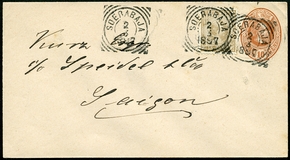 SOERABAJA
2
3
1887
SOERABAJA
2
3
1887
SOERABAJA
2
3
Kurz
c/o Speidel & Co
Saigon